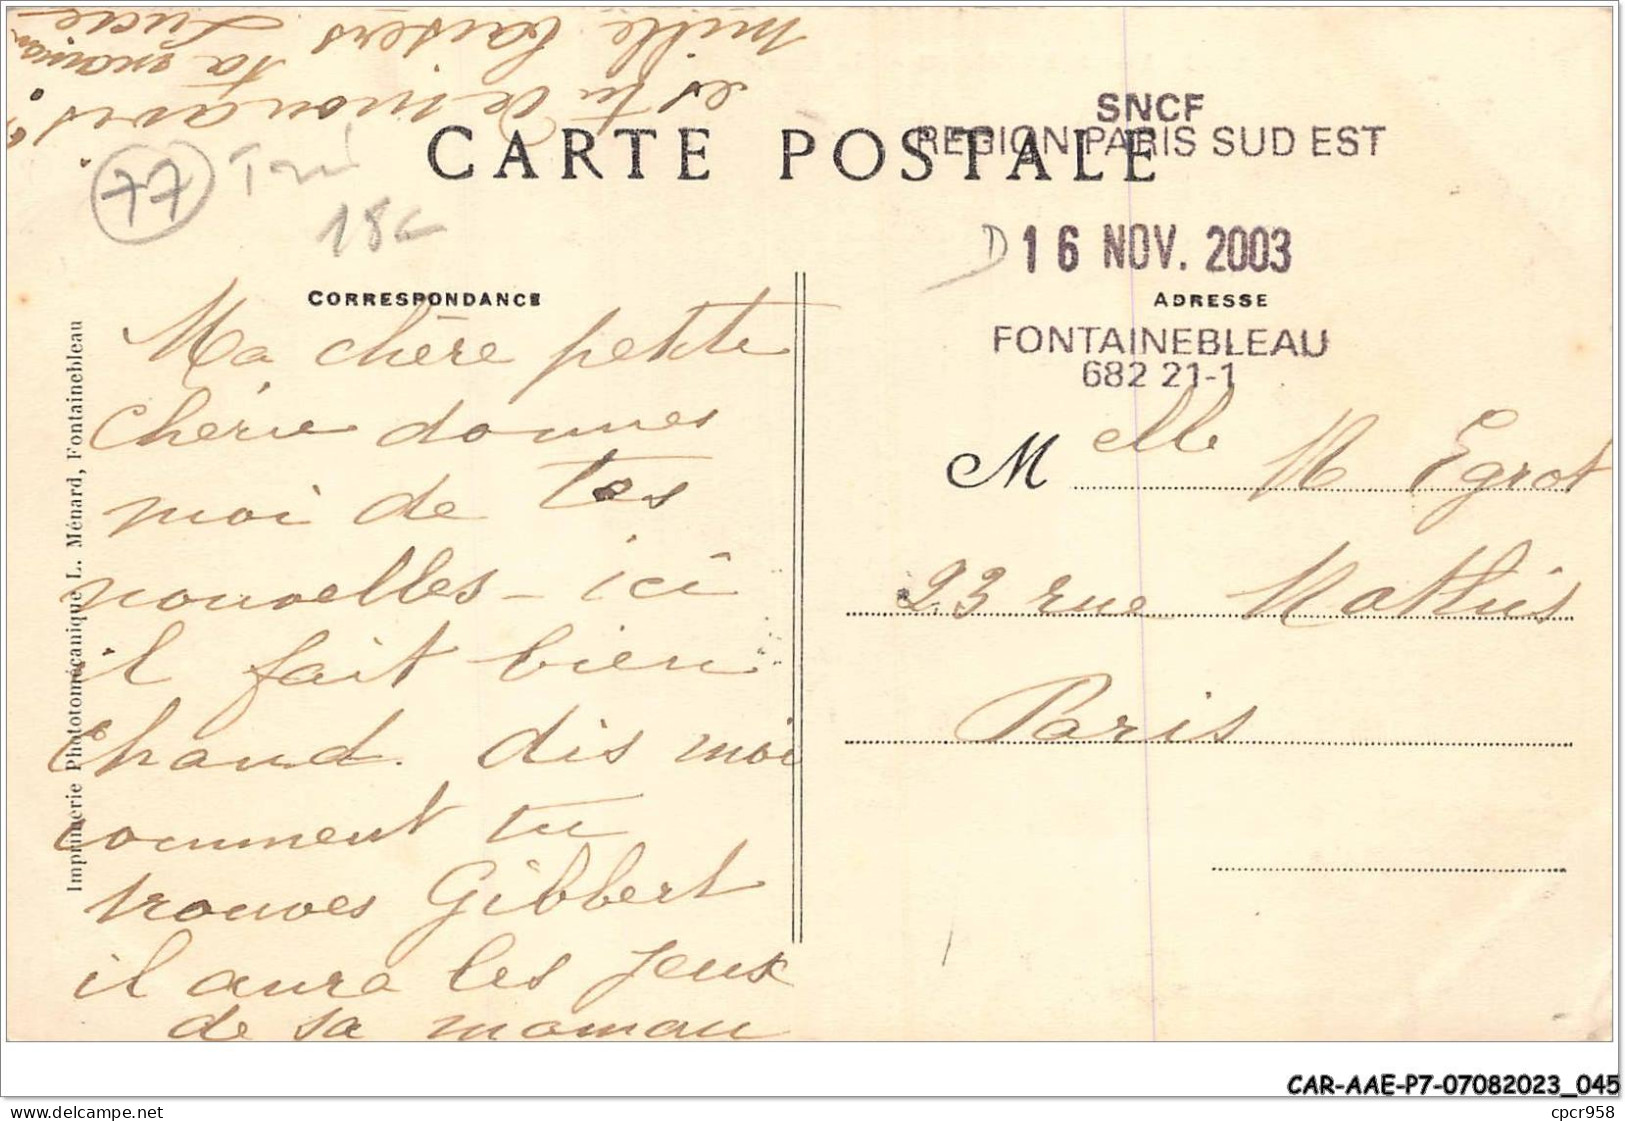 mille baisers ta maman Lucie
es tu de mon avis ?
SNCF
REGION PARIS SUD EST
CARTE POSTALE
77
18
D 16 NOV. 2003
CORRESPONDANCE
ADRESSE
FONTAINEBLEAU
682 21-1
Ma chère petite
Chérie donnes
moi de tes
nouvelles - ici
il fait bien
chaud. dis moi
comment tu
trouves Gibbert
il aura les yeux
de sa maman
M elle M Egrot
23 rue Mathis
Paris
Imprimerie Phototomécanique L. Ménard, Fontainebleau
CAR-AAE-P7-07082023_045
delcampe.net
cpcr958